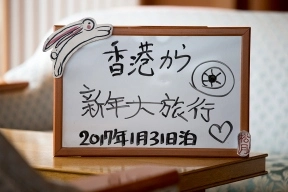 香港から
新年大旅行
2017年1月31日泊